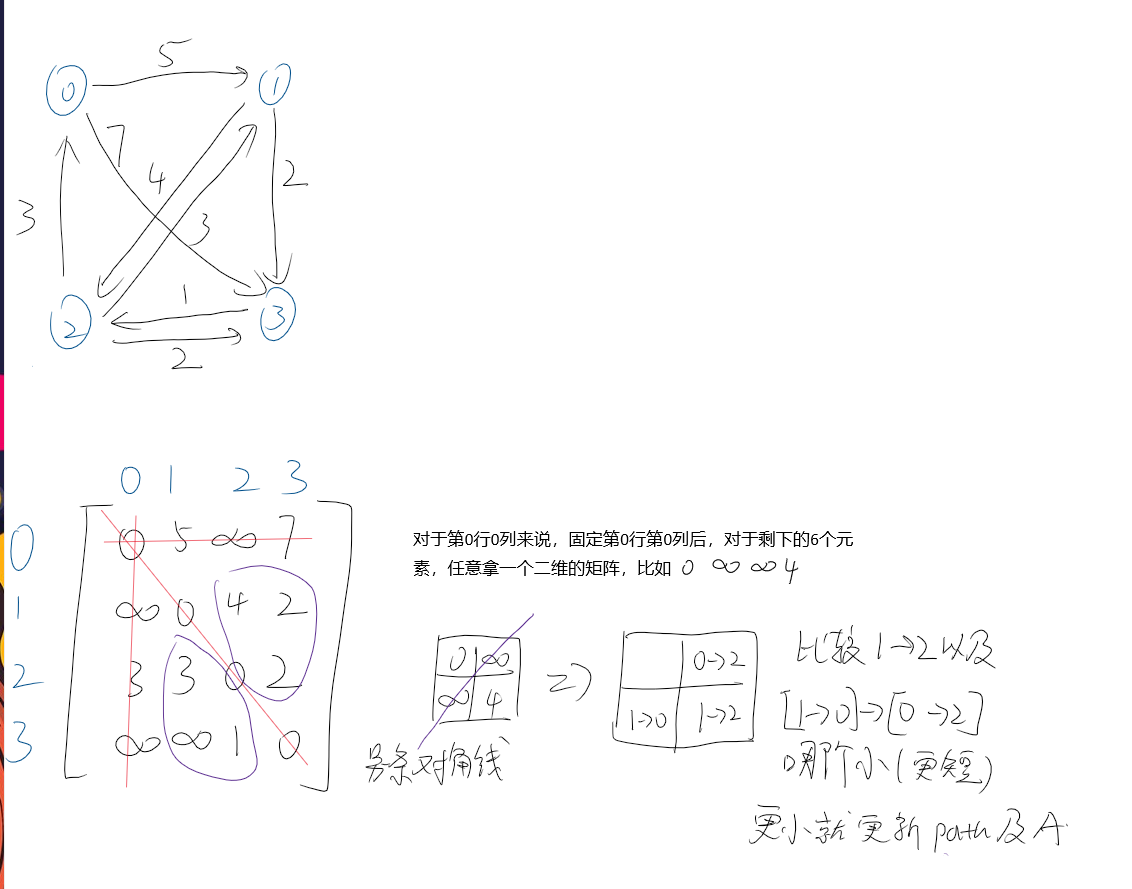 5
0
1
7
4
2
3
3
1
2
3
2
0 1 2 3
0
0 5 ∞ 7
1
∞ 0 4 2
2
3 3 0 2
3
∞ ∞ 1 0
对于第0行0列来说，固定第0行第0列后，对于剩下的6个元
素，任意拿一个二维的矩阵，比如 0 ∞ ∞ 4
0 ∞
∞ 4
另条对角线
=>
0→2
1→0 1→2
比较1→2以及
[1→0]→[0→2]
哪个小(更短)
更小就更新path及A